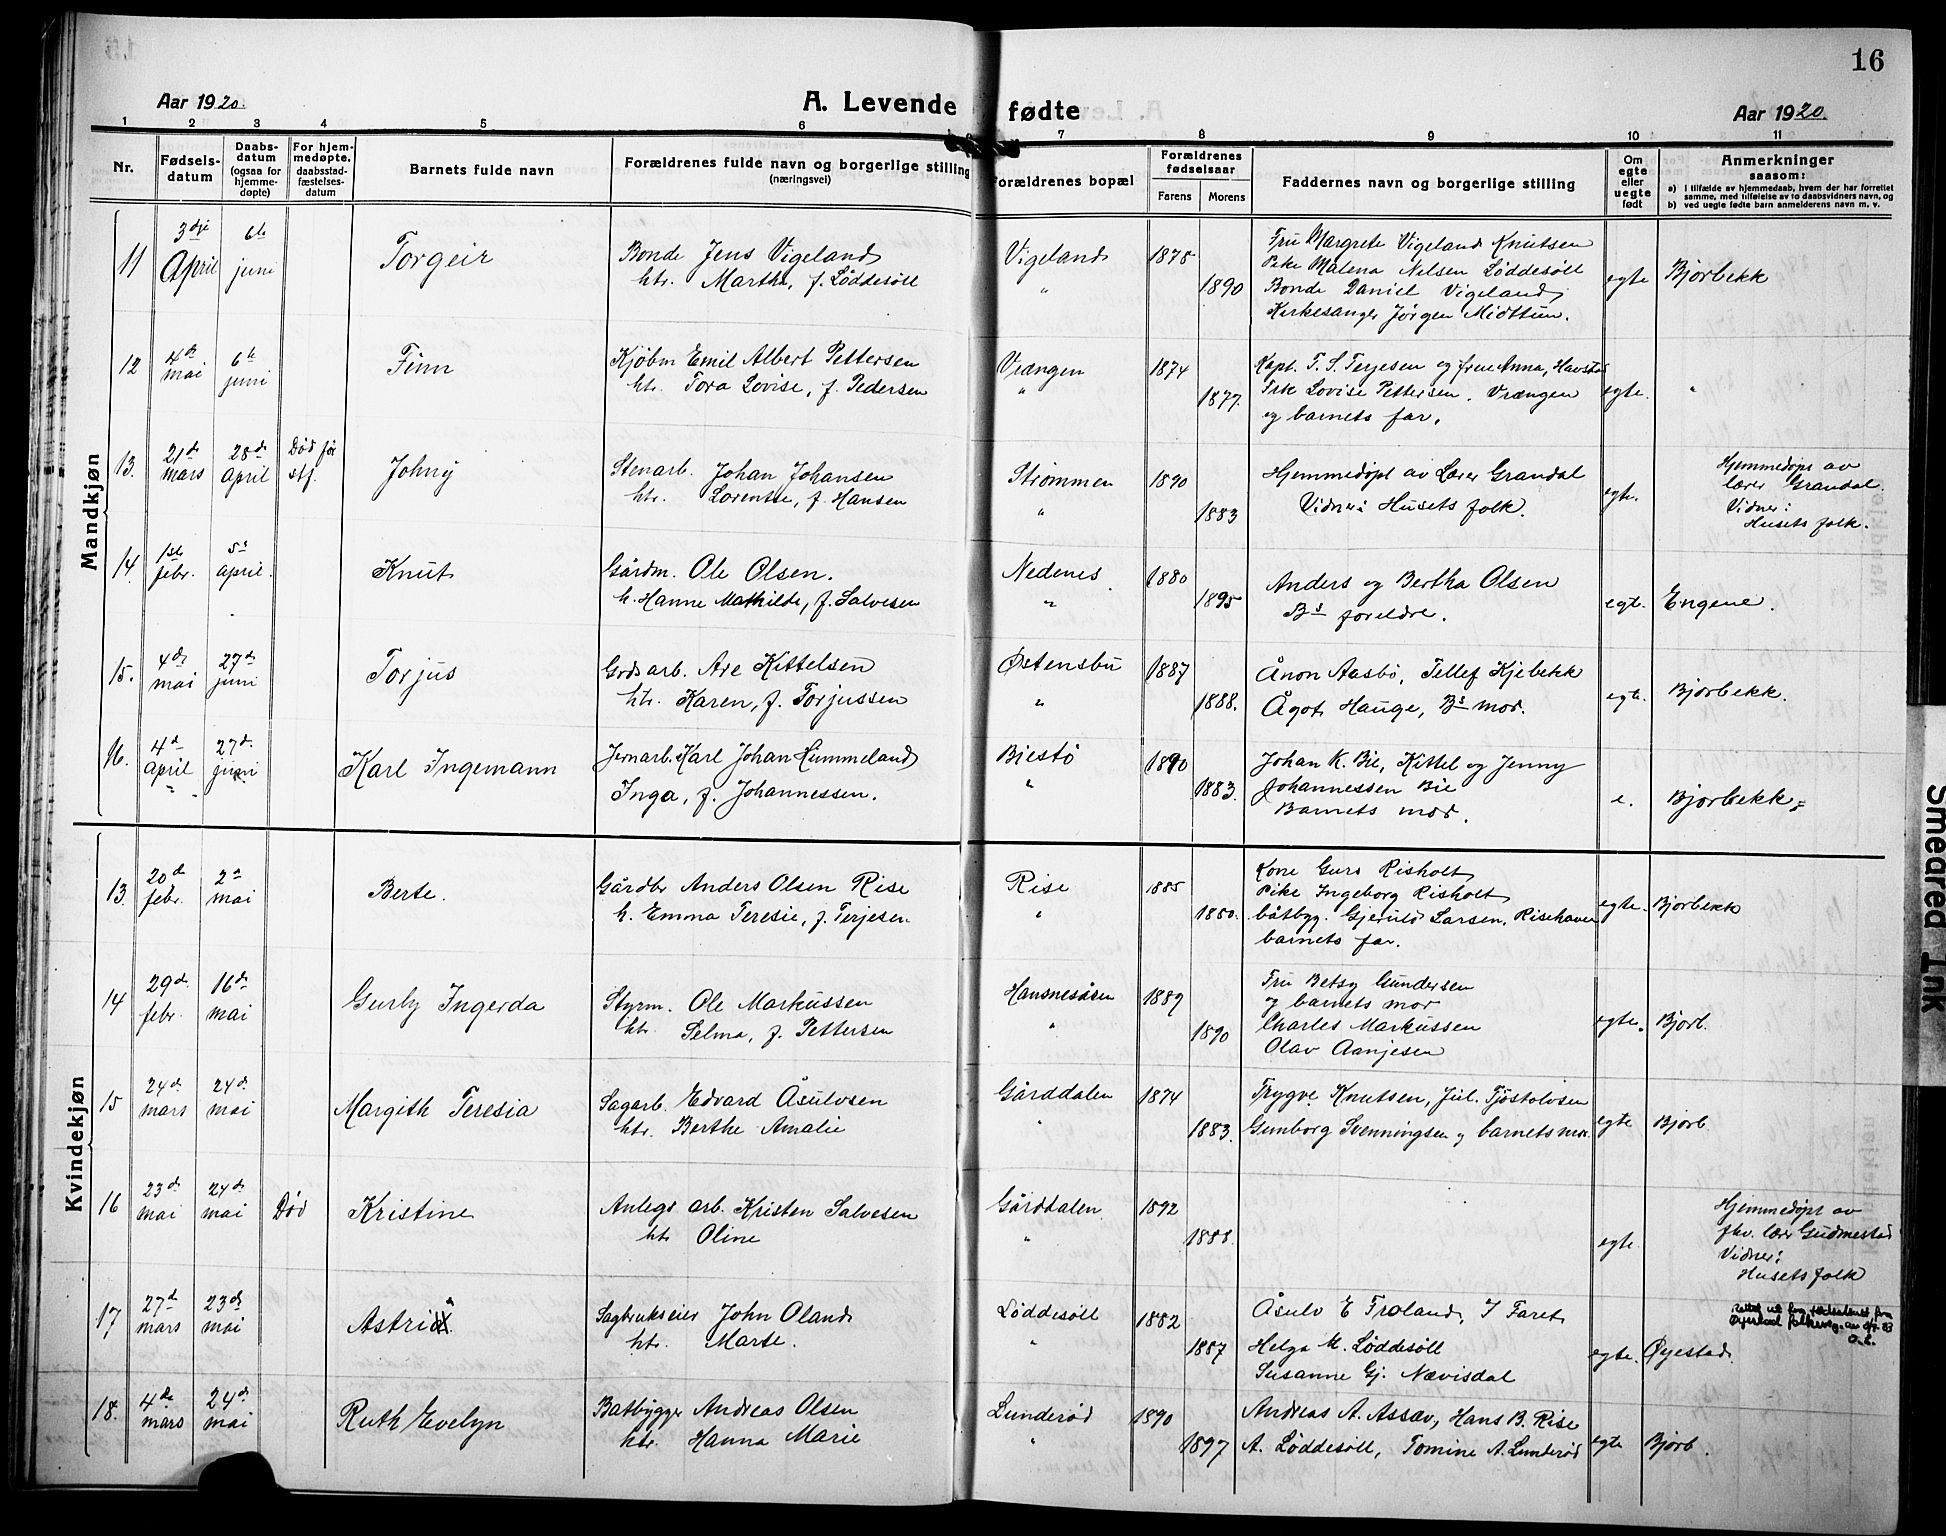 16
Aar 1920.
A. Levende fødte
Aar 1920.
1 2 3 4 5 6 7 8 9 10 11
Nr.
Fødsels-
datum
Daabs-
datum
(ogsaa for
hjemme-
døpte)
For hjem-
medøpte,
daabsstad-
fæstelses-
datum
Barnets fulde navn
Forældrenes fulde navn og borgerlige stilling
(næringsvei)
Forældrenes bopæl
Forældrenes
fødselsaar
Farens Morens
Faddernes navn og borgerlige stilling
Om
egte
eller
uegte
født
Anmerkninger
saasom:
a) i tilfælde av hjemmedaab, hvem der har forrettet
samme, med tilføielse av to daabsvidners navn, og
b) ved uegte fødte barn anmelderens navn m. v.
Mandkjøn
11 3die April 6te juni Torgeir
Bonde Jens Vigeland
htr. Martha, f. Løddesøll
Vigeland " 1878 1890
Fru Margrete Vigeland Knutsen
Pike Malena Nelsen Løddesøll
Bonde Daniel Vigeland
Kirkesanger Jørgen Midttun.
egte Bjorbekk
12 4de mai 6te juni Finn
Kjøbm Emil Albert Pettersen
htr. Tora Lovise, f. Pedersen
Vrængen " 1874 1877.
Kapt. T. S. Terjesen og frue Anna, Havstad
Frk Lovise Pettersen. Vrængen
og barnets far.
egte. "
13. 21de mars 28de April Død før stf. Johny
Stenarb. Johan Johansen
htr. Lorentse, f. Hansen
Strømmen " 1890 1883
Hjemmedøpt av Lærer Grandal
Vidner: Husets folk.
egte.
Hjemmedøpt av
lærer Grandal.
Vidner:
Husets folk.
14. 1ste febr. 5te april. Knut
Gårdm. Ole Olsen.
h. Hanne Mathilde, f. Salvesen
Nedenes " 1880 1895
Anders og Bertha Olsen
Bs foreldre.
egt. Engene.
15. 4de mai 27de juni Torjus
Grdsarb. Are Kittelsen
htr. Karen, f. Torjussen
Østensbu " 1887 1888.
Ånon Aasbø, Tellef Kjebekk
Ågot Hauge, Bs mor.
egt. Bjorbekk.
16. 4de April 27de juni Karl Ingemann
Jernarb. Karl Johan Hummeland
Inga, f. Johannessen.
Biestø " 1890 1883.
Johan K. Bie, Kittel og Jenny
Johannessen Bie
Barnets mor.
e. Bjorbekk
Kvindekjøn
13. 20de febr. 2den mai Berte.
Gårdbr Anders Olsen Rise
h. Emma Teresie, f. Terjesen
Rise " 1885 1880.
Kone Guro Risholt
Pike Ingeborg Risholt
båtbyg. Gjeruld Larsen, Risehaven
barnets far.
egte. Bjorbekk
14 29de febr. 16de mai Gurly Ingerda
Styrm. Ole Markussen
htr. Selma, f. Pettersen
Hansnesåsen " 1889 1890
Fru Betsy Gundersen
og barnets mor
Charles Markussen
Olav Aanjesen
egte. Bjorb.
15 24de mars 24de mai Margith Teresia
Sagarb. Edvard Åsulvsen
htr. Berthe Amalie
Gårddalen " 1874 1883.
Trygve Knutsen, Jul. Tjøstolvsen
Gunborg Svenningsen og barnets mor.
egte Bjorb
16 23de mai 24de mai Død Kristine
Anlegs arb. Kristen Salvesen
htr Oline
Gårddalen. " 1892 1888.
egte.
Hjemmedøpt av
fhv. lærer Gudmestad
Vidner:
Husets folk
17 27de mars 23de mai Astrid
Sagbrukseier John Oland
htr. Marte.
Løddesøll " 1882 1887
Åsulv E Froland, I Faret
Helga M. Løddesøll
Susanne Gj. Nævisdal
egte. Øyestad.
18. 4de mars 24de mai Ruth Evelyn
Batbygger Andreas Olsen
htr. Hanna Marie
Lunderød " 1890 1897
Andreas A. Assav, Hans B. Rise
A. Løddesøll, Tomine A. Lunderød
egte Bjorb.
Smeared Ink